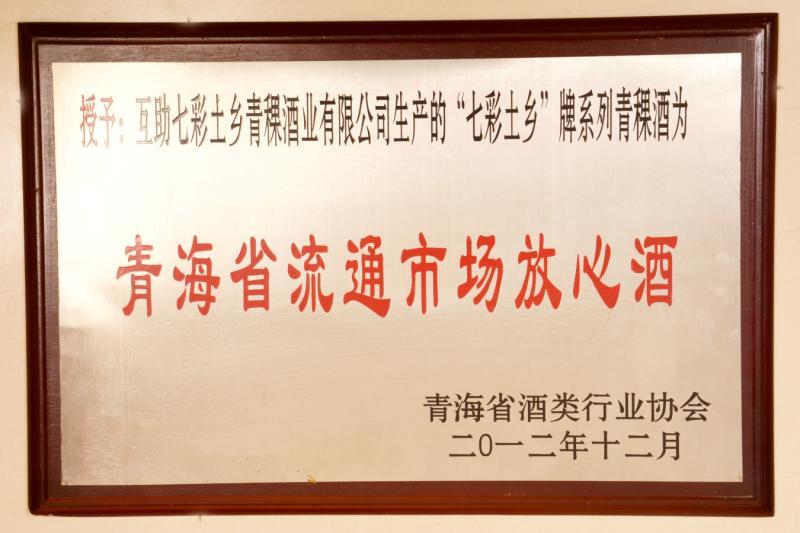 授予：互助七彩土乡青稞酒业有限公司生产的“七彩土乡”牌系列青稞酒为
青海省流通市场放心酒
青海省酒类行业协会
二0一二年十二月